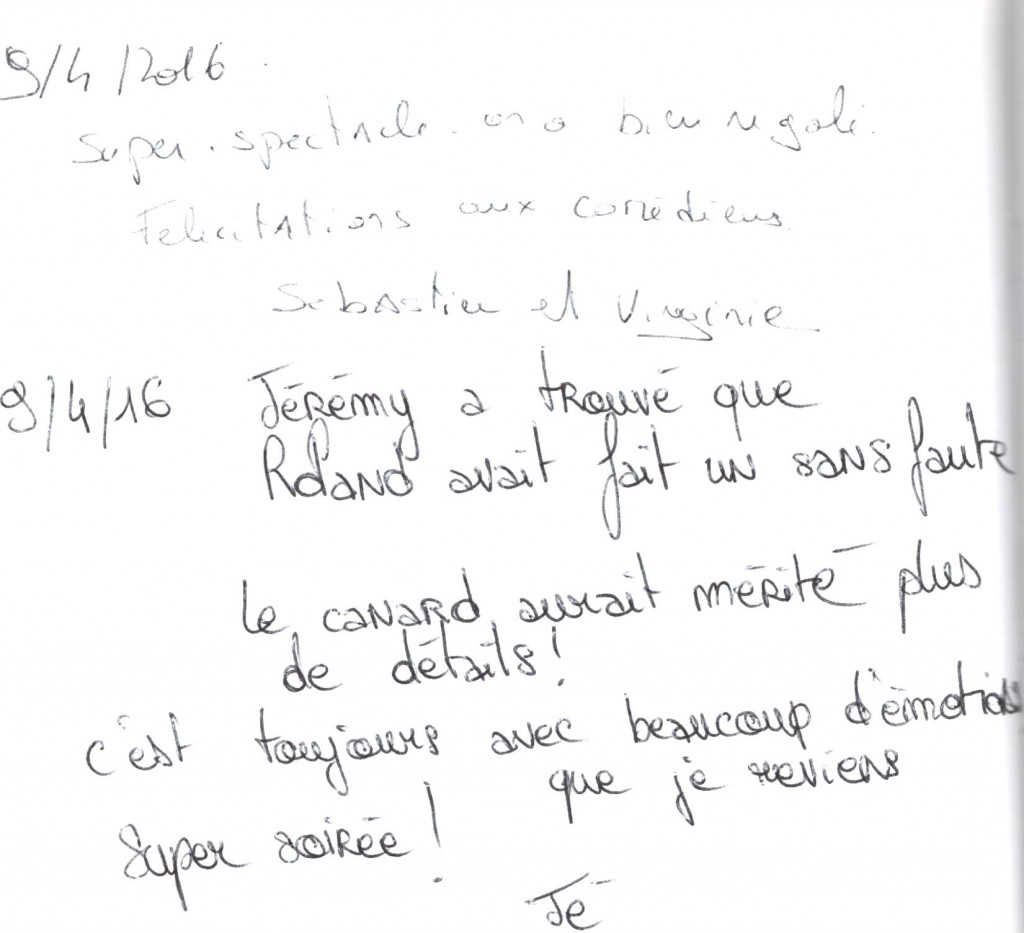 9/4/2016.
Super. spectacle. on a bien rigolé.
Felicitations aux comédiens.
Sebastien et Virginie
9/4/16 Jérémy a trouvé que
Roland avait fait un sans faute
Le canard aurait mérité plus
de détails!
c'est toujours avec beaucoup d'émotions
que je reviens
Super soirée!
Jé